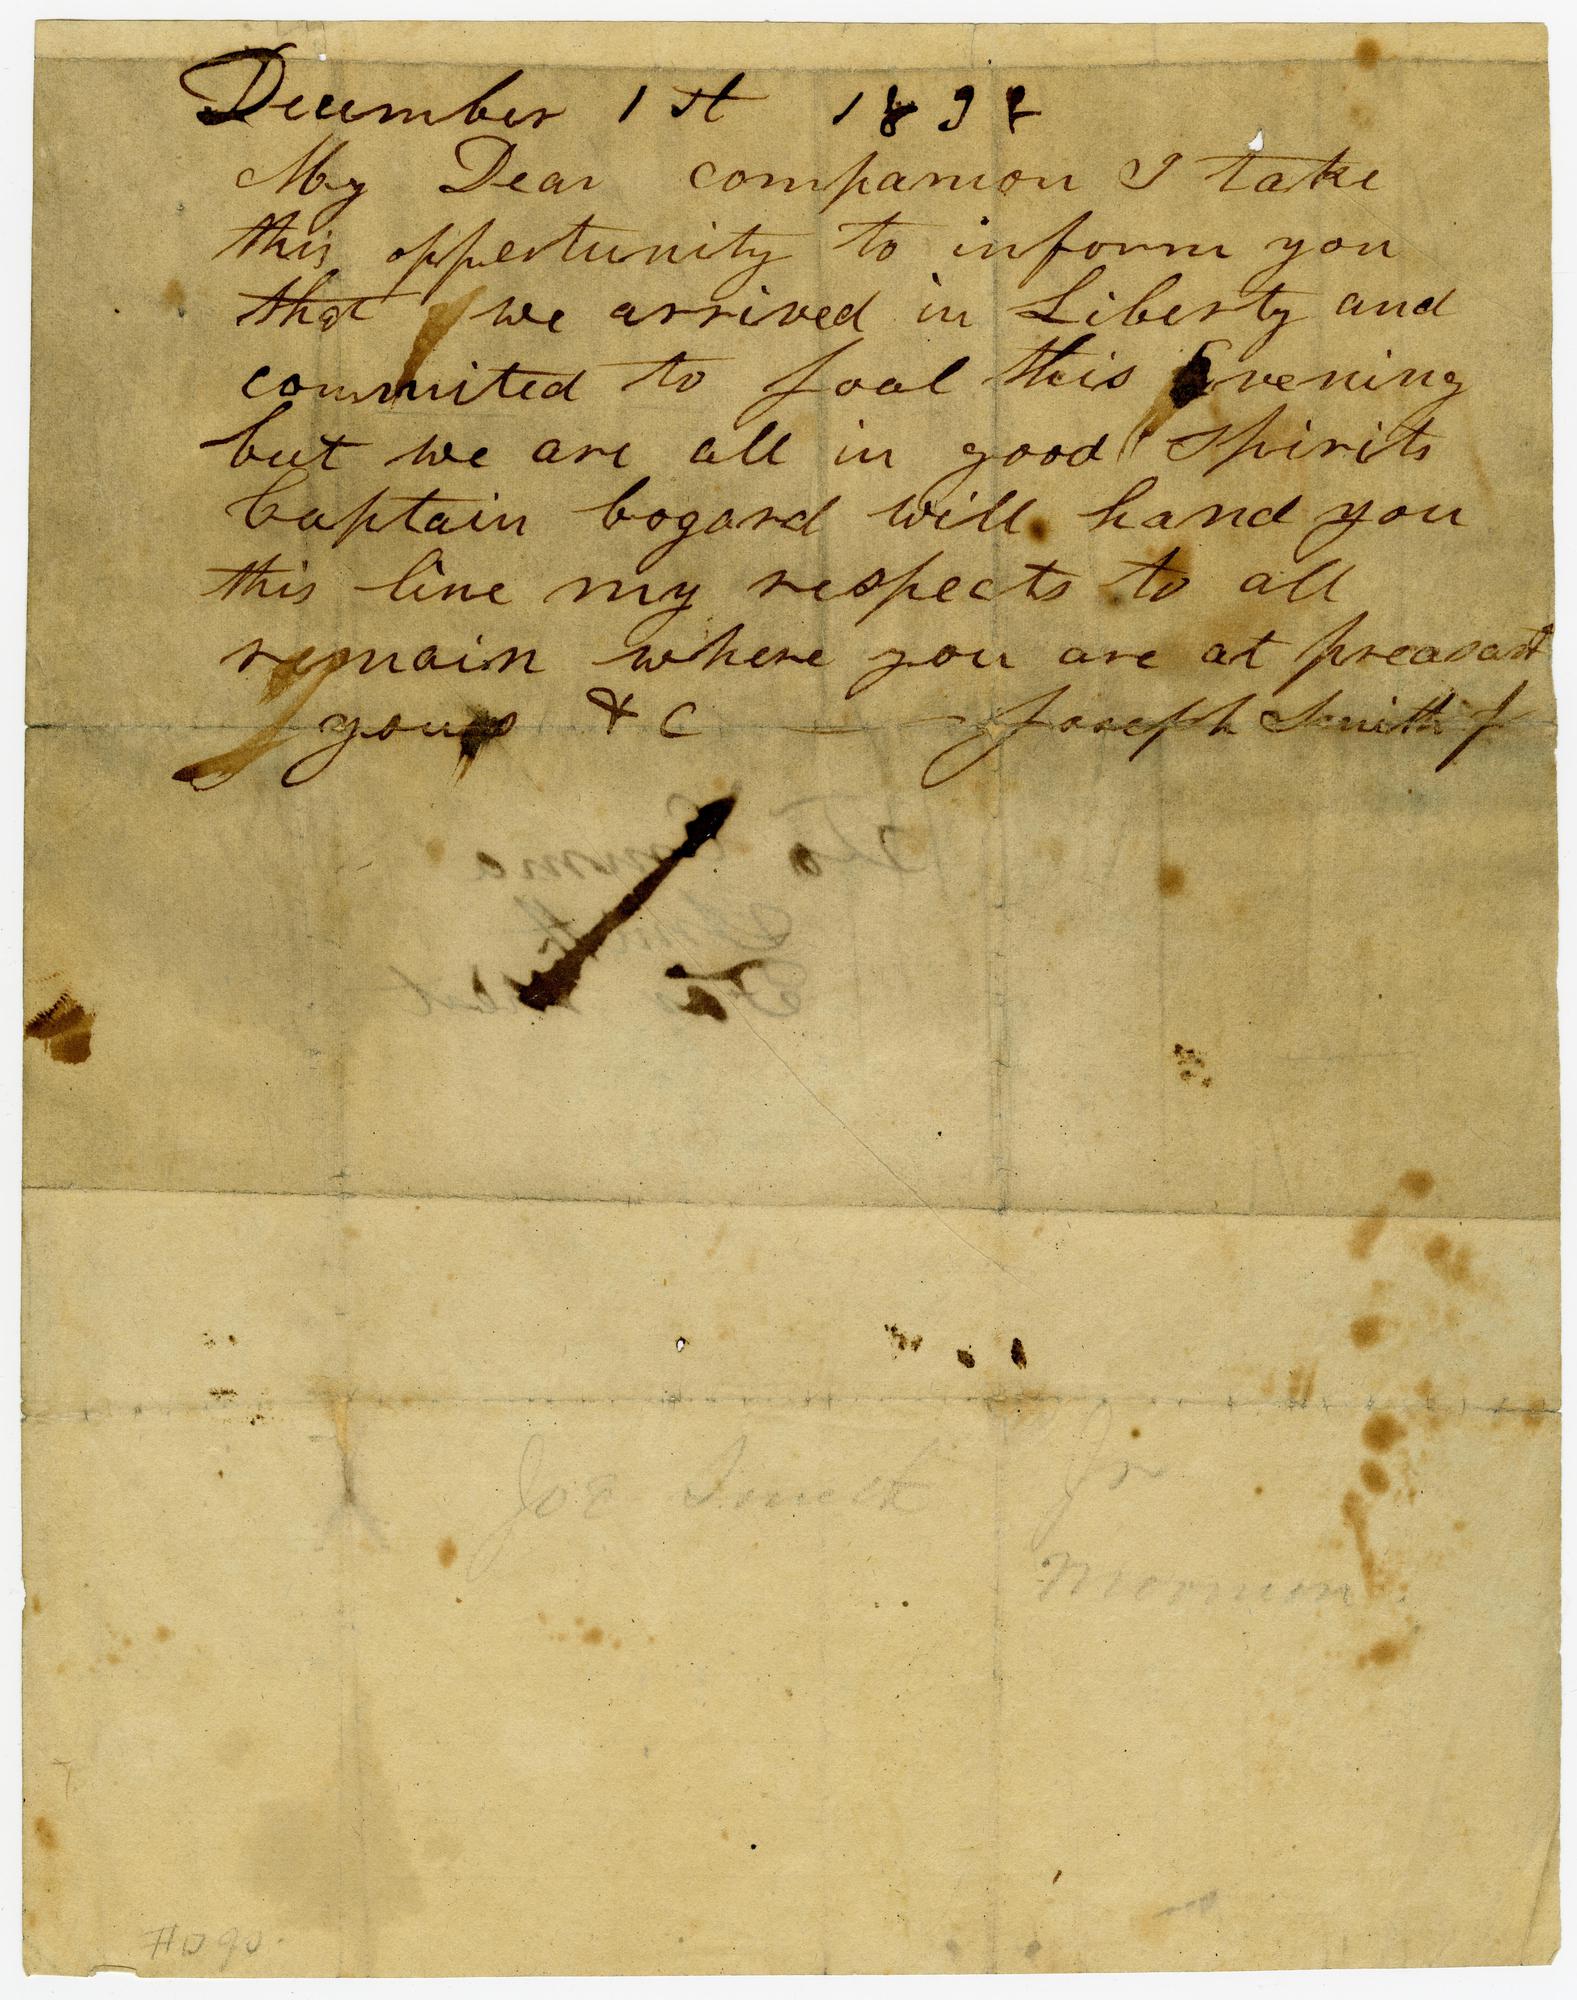 December 1st 1838
My Dear companion I take
this oppertunity to inform you
that we arrived in Liberty and
committed to Joal this Evening
but we are all in good spirits
Captain bogard will hand you
this line my respects to all
remain where you are at preasant
yours &c — Joseph Smith Jr
To Emma
Smith
Far West
Joe Smith Jr
Mormon